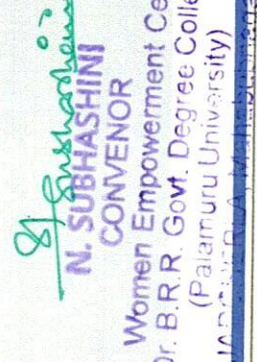 N. SUBHASHINI
CONVENOR
Women Empowerment Ce
Dr. B.R.R. Govt. Degree Colle
(Palamuru University)